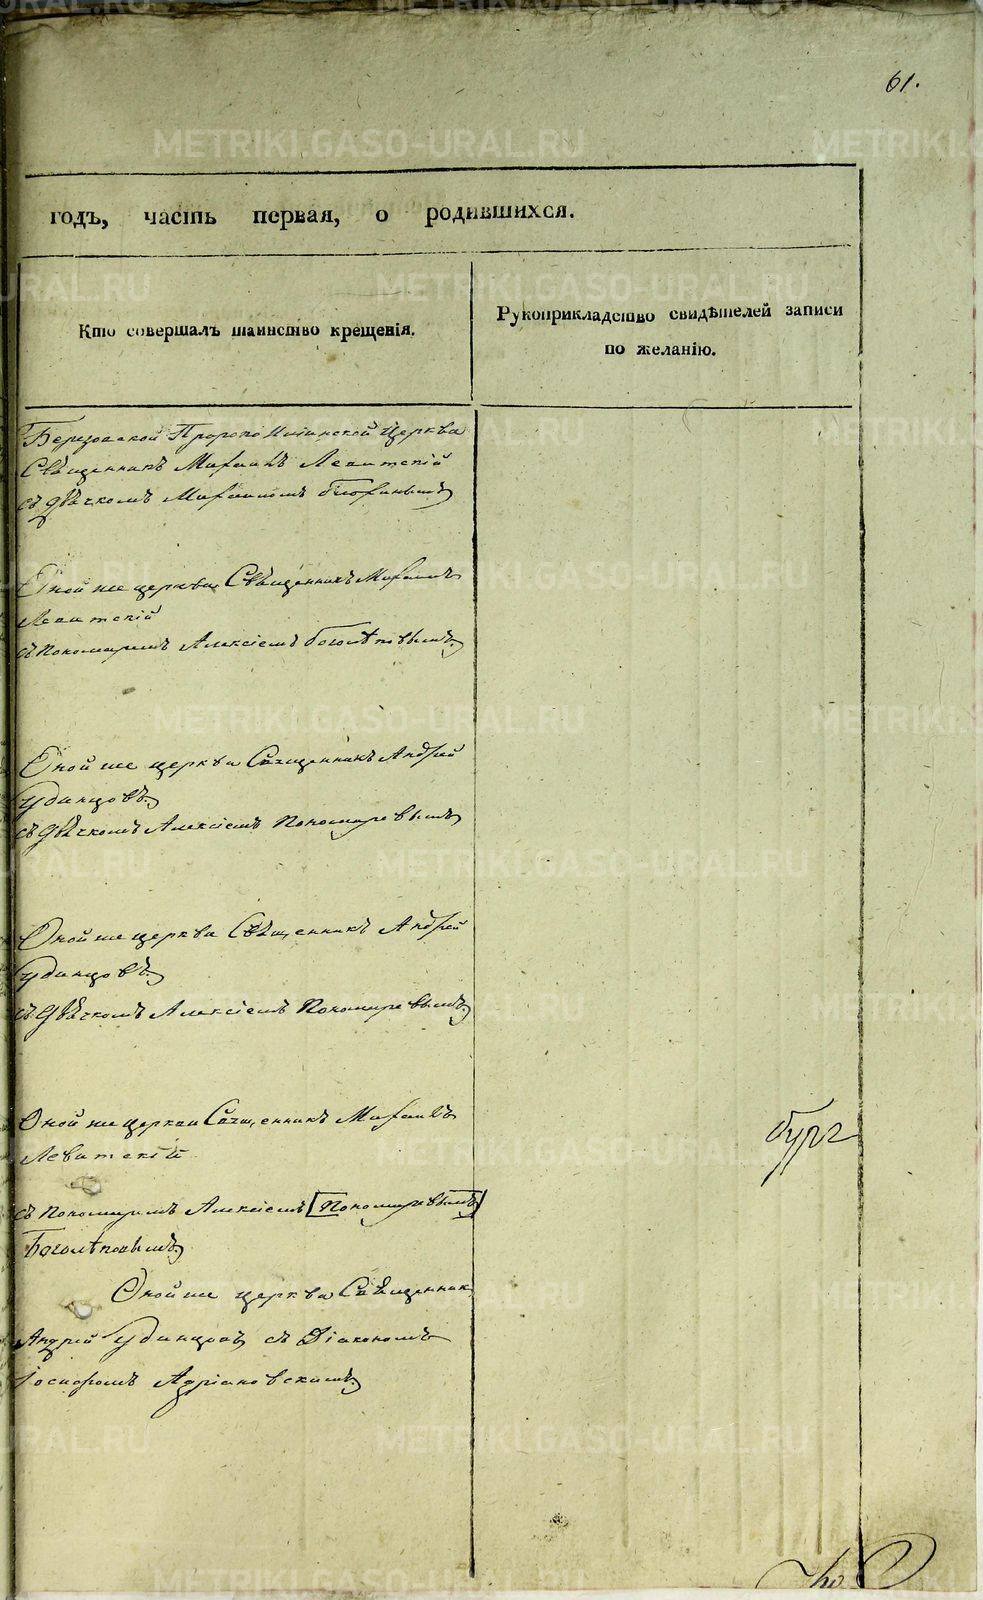 61.
годъ, часть первая, о родившихся.
Кто совершалъ таинство крещенія.
Рукоприкладство свидѣтелей записи
по желанію.
Березовской Пророко Ильинской Церкви
Священникъ Михаилъ Левитскій
съ дьячкомъ Михаиломъ
Оной же церкви Священникъ Михаилъ
Левитскій
съ Пономаремъ Алексіемъ Боголѣповымъ
Оной же церкви Священникъ Андрей
Удинцовъ
съ Дьячкомъ Алексіемъ Пономаревымъ
Оной же церкви Священникъ Андрей
Удинцовъ
съ Дьячкомъ Алексіемъ Пономаревымъ
Оной же церкви Священникъ Михаилъ
Левитскій
съ Пономаремъ Алексіемъ [Пономаревымъ]
Боголѣповымъ
Оной же церкви Священникъ
Андрей Удинцовъ съ Діакономъ
Іосифомъ Адріановскимъ
бург
METRIKI.GASO-URAL.RU